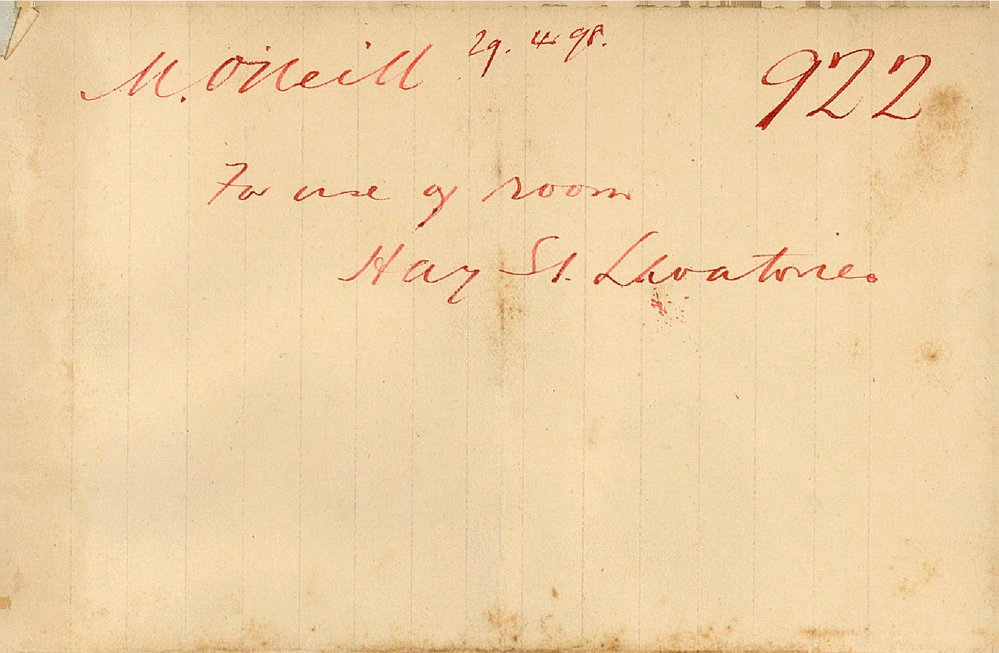 M. O'Neill 29. 4. 98. 922
For use of room
Hay St. Lavatories